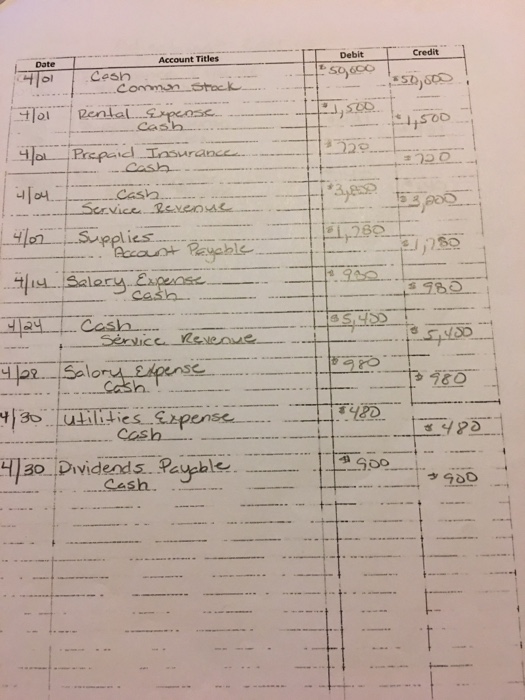 Date Account Titles Debit Credit
4/01 Cash $50,000
Common Stock $50,000
4/01 Rental Expense $1,500
Cash $1,500
4/01 Prepaid Insurance $720
Cash $720
4/04 Cash
Service Revenue
4/07 Supplies $1,780
Account Payable $1,780
4/14 Salary Expense
Cash $980
4/24 Cash $5,400
Service Revenue $5,400
4/28 Salary Expense $980
Cash $980
4/30 Utilities Expense $480
Cash $480
4/30 Dividends Payable $900
Cash $900